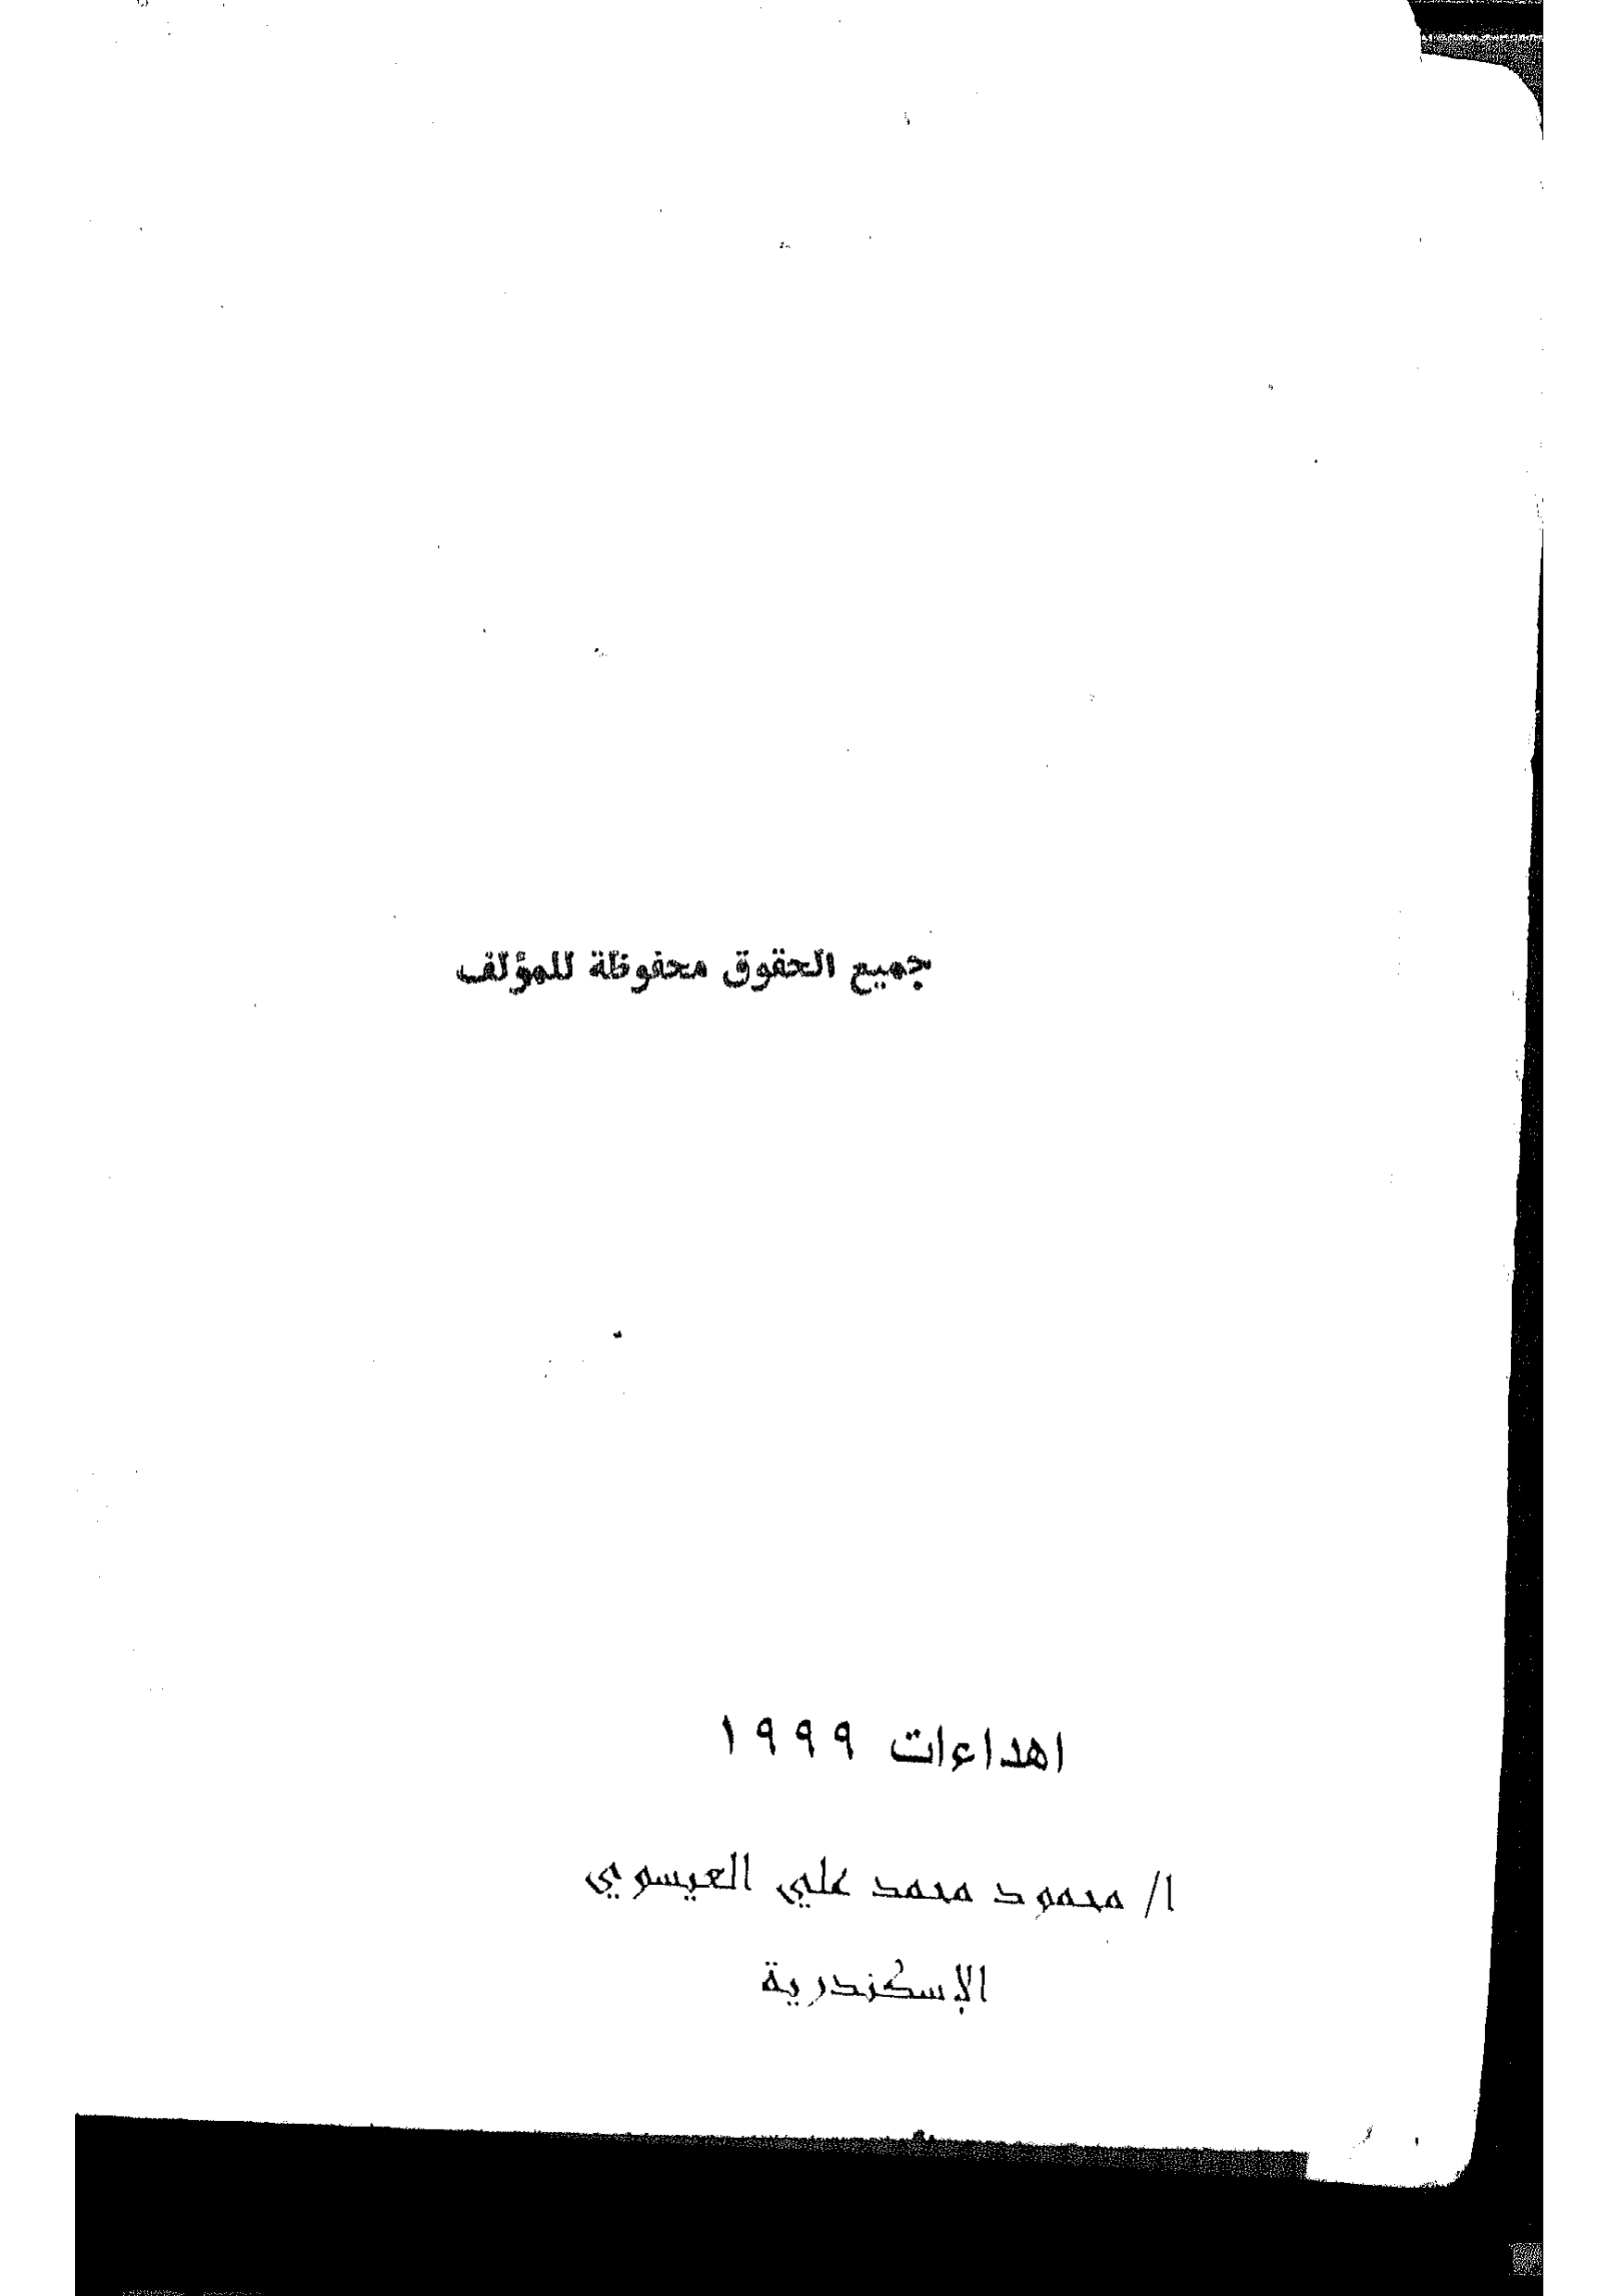 جميع الحقوق محفوظة للمؤلف
اهداءات ١٩٩٩
ا/ محمود محمد علي العيسوي
الإسكندرية